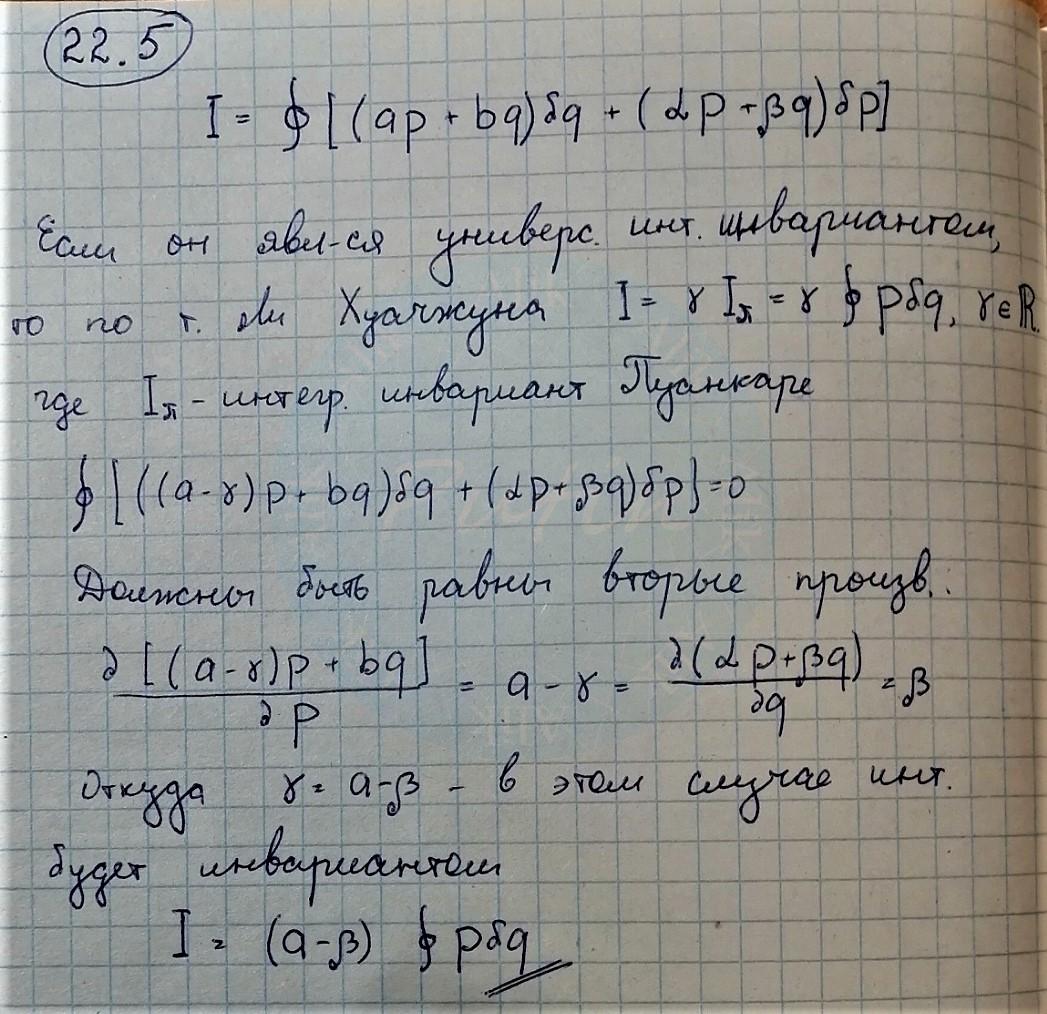 22.5
I = ∮ [(ap + bq)δq + (αp + βq)δp]
Если он явл-ся универс. инт. инвариантом,
то по т. Ли Хуачжуна I = γ Iп = γ ∮ pδq, γ ∈ ℝ.
где Iп - интегр. инвариант Пуанкаре
∮ [((a-γ)p + bq)δq + (αp + βq)δp] = 0
Должны быть равны вторые произв.:
∂[(a-γ)p + bq]/∂p = a - γ = ∂(αp + βq)/∂q = β
Откуда γ = a-β - в этом случае инт.
будет инвариантом
I = (a-β) ∮ pδq